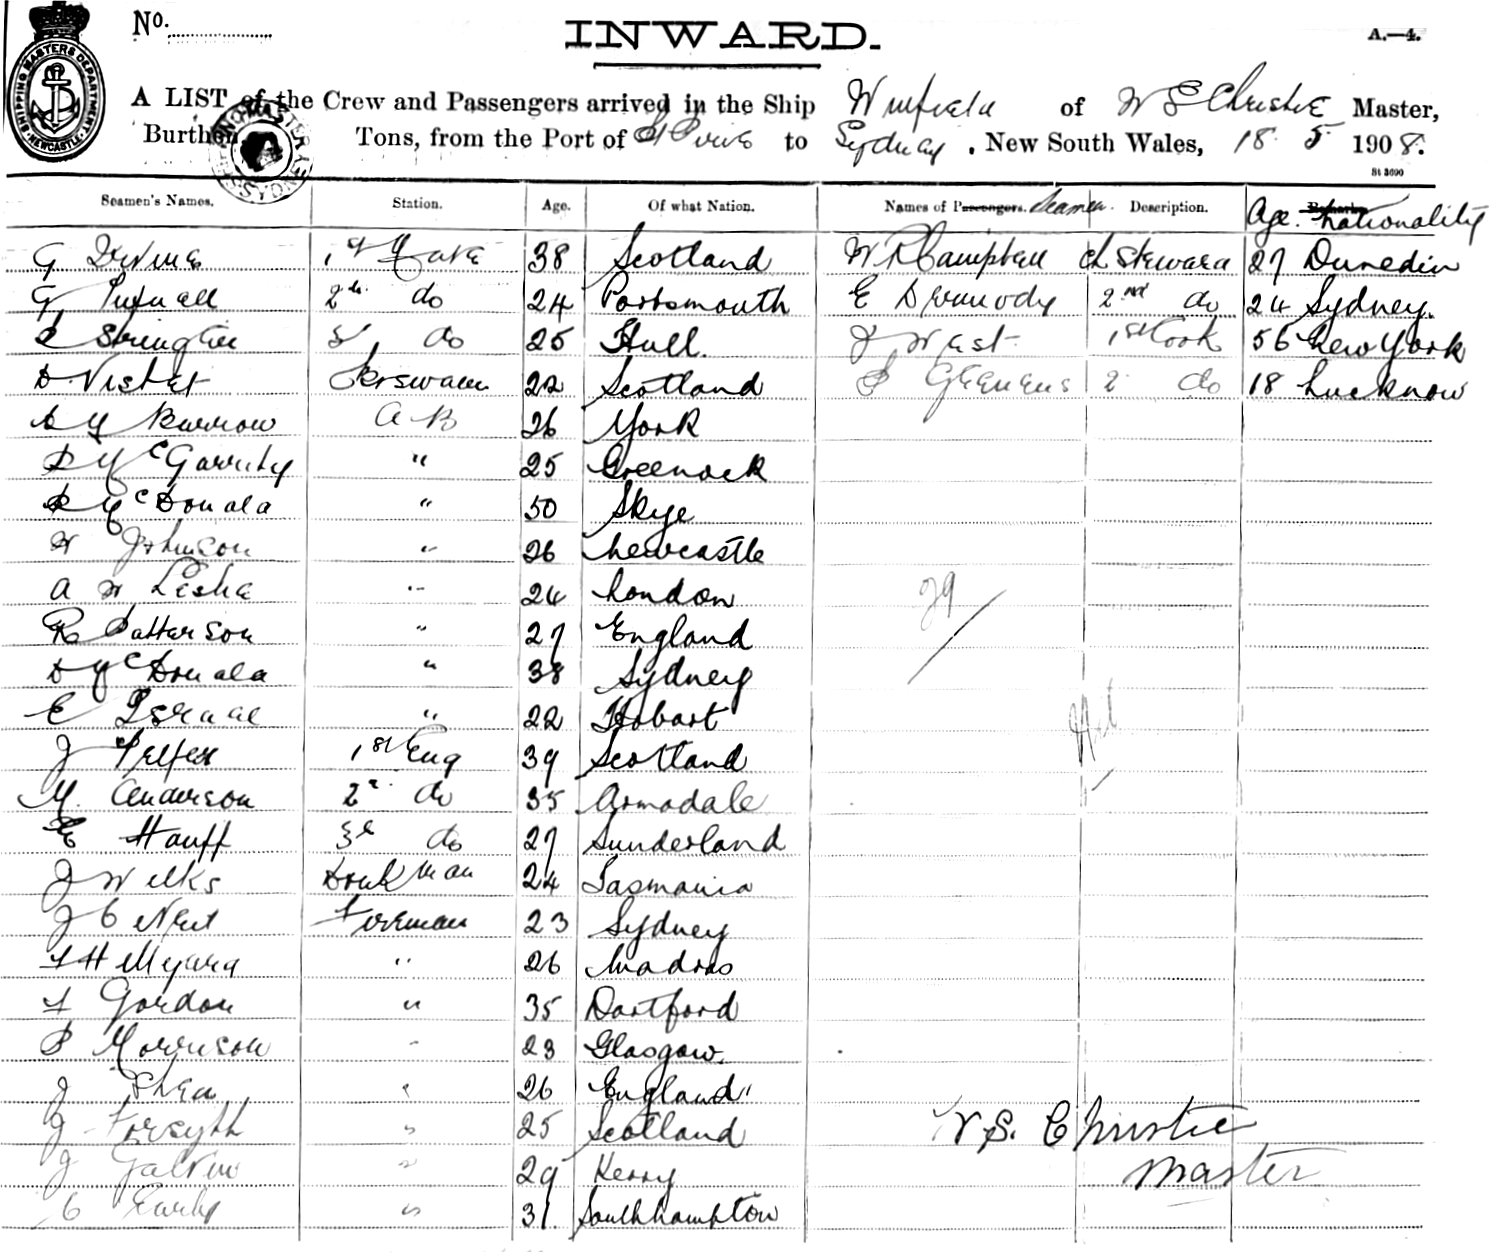 No.
INWARD.
A.—4.
SHIPPING MASTERS DEPARTMENT NEWCASTLE
A LIST of the Crew and Passengers arrived in the Ship of W S Christie Master,
Burthen Tons, from the Port of to Sydney, New South Wales, 18 5 1908.
St 3600
Seamen's Names. Station. Age. Of what Nation. Names of Passengers. Seamen. Description. Remarks Age. Nationality
G Irvine 1st Mate 38 Scotland W R Campbell Ch Steward 27 Dunedin
G 2nd do 24 Portsmouth E Dermody 2nd do 24 Sydney.
3 do 25 Hull. J West 1st Cook 56 New York
D 22 Scotland 2 do 18 Lucknow
D M Burrow A B 26 York
D McGarrity " 25 Greenock
D McDonald " 50 Skye
W Johnson " 26 Newcastle
A W " 24 London
R Patterson " 27 England
D McDonald " 38 Sydney
E Israel " 22 Hobart
J Telfer 1st Eng 39 Scotland
M. Anderson 2nd do 35 Armadale
E Hauff 3rd do 27 Sunderland
J Wilks Donkman 24 Tasmania
J C Fireman 23 Sydney
" 26 Madras
F Gordon " 35 Dartford
P Morrison " 23 Glasgow.
J Shea " 26 England
J Forsyth " 25 Scotland
J Galvin " 29 Kerry
C Early " 31 Southhampton
29
W. S. Christie
Master